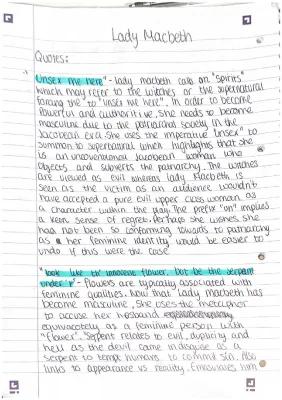 Lady Macbeth
Quotes:
"Unsex me here" - lady macbeth calls on "Spirits"
which may refer to the witches or the supernatural
forcing the to "unsex me here". In order to become
Powerful and authoritive, she needs to become
masculine due to the patriarchal society in the
Jacobean era. She uses the imperative "unsex" to
summon to supernatural which highlights that she
is an unconventional Jacobean woman who
objects and subverts the patriarchy. The witches
are viewed as evil whereas lady Macbeth is
seen as the victim as an audience wouldn't
have accepted a pure evil upper class woman as
a character within the play. The prefix "un" implies
a keen sense of regret. Perhaps she wishes she
had not been so conforming towards to patriarchy
as her feminine identity would be easier to
undo if this were the case
"look like th' innocent flower, but be the serpent
under't" - Flowers are typically associated with
feminine qualities. Now that Lady Macbeth has
become masculine, she uses the metaphor
to accuse her husband
equivocately as a feminine person with
"flower". Serpent relates to evil, duplicity and
hell as the devil came in disguise as a
serpent to tempt humans to commit sin. Also
links to appearance vs reality. Emasculates him